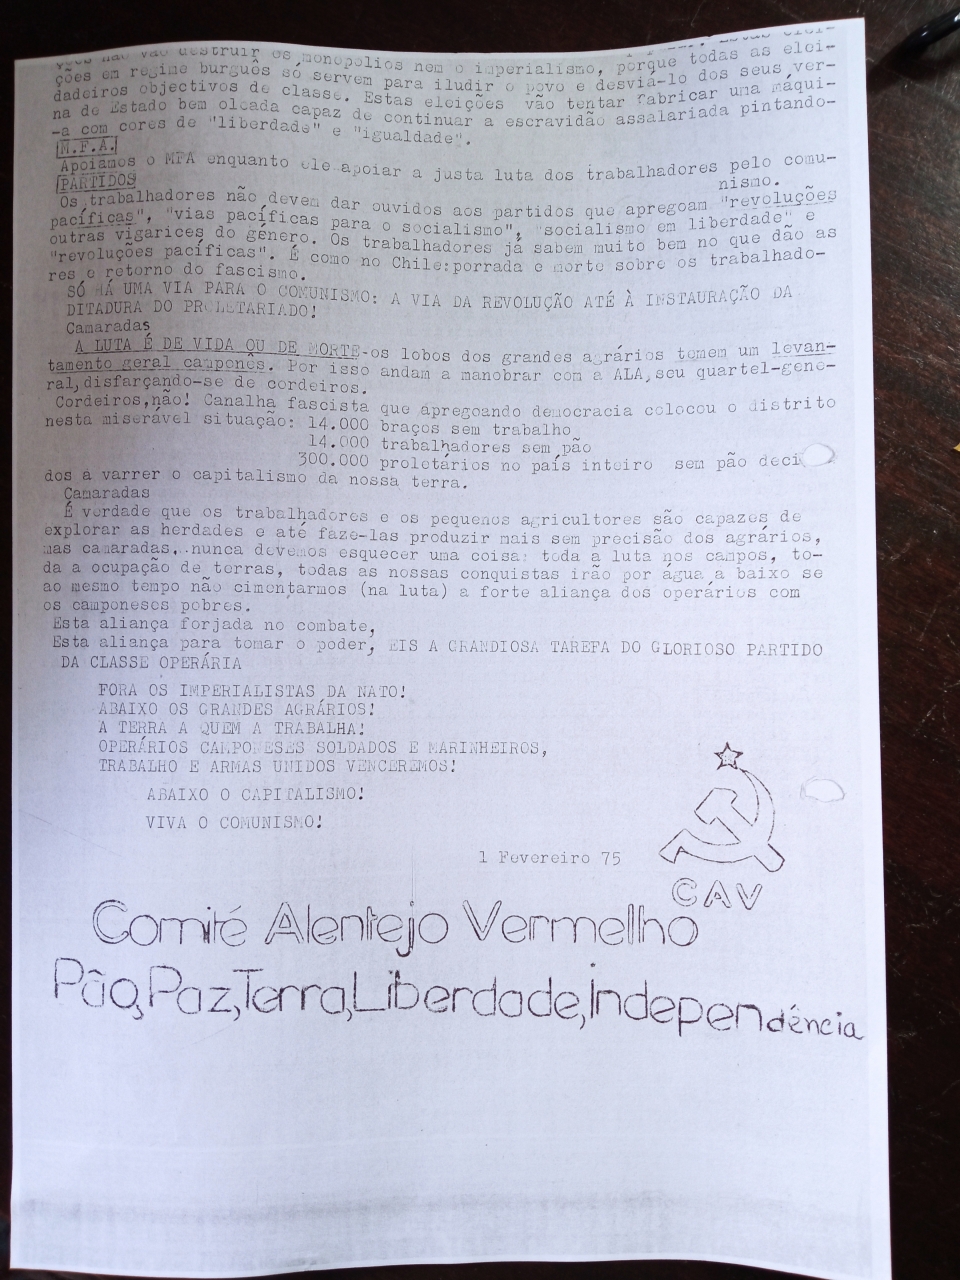 ções não vão destruir os monopólios nem o imperialismo, porque todas as elei-
ções em regime burguês só servem para iludir o povo e desviá-lo dos seus ver-
dadeiros objectivos de classe. Estas eleições vão tentar fabricar uma máqui-
na de Estado bem oleada capaz de continuar a escravidão assalariada pintando-
-a com cores de "liberdade" e "igualdade".
M.F.A.
Apoiamos o MFA enquanto ele apoiar a justa luta dos trabalhadores pelo comu-
nismo.
PARTIDOS
Os trabalhadores não devem dar ouvidos aos partidos que apregoam "revoluções
pacíficas", "vias pacíficas para o socialismo", "socialismo em liberdade" e
outras vigarices do género. Os trabalhadores já sabem muito bem no que dão as
"revoluções pacíficas". É como no Chile:porrada e morte sobre os trabalhado-
res e retorno do fascismo.
SÓ HÁ UMA VIA PARA O COMUNISMO: A VIA DA REVOLUÇÃO ATÉ À INSTAURAÇÃO DA
DITADURA DO PROLETARIADO!
Camaradas
A LUTA É DE VIDA OU DE MORTE-os lobos dos grandes agrários temem um levan-
tamento geral camponês. Por isso andam a manobrar com a ALA,seu quartel-gene-
ral,disfarçando-se de cordeiros.
Cordeiros,não! Canalha fascista que apregoando democracia colocou o distrito
nesta miserável situação: 14.000 braços sem trabalho
14.000 trabalhadores sem pão
300.000 proletários no país inteiro sem pão deci
dos a varrer o capitalismo da nossa terra.
Camaradas
É verdade que os trabalhadores e os pequenos agricultores são capazes de
explorar as herdades e até faze-las produzir mais sem precisão dos agrários,
mas camaradas, nunca devemos esquecer uma coisa: toda a luta nos campos, to-
da a ocupação de terras, todas as nossas conquistas irão por água a baixo se
ao mesmo tempo não cimentarmos (na luta) a forte aliança dos operários com
os camponeses pobres.
Esta aliança forjada no combate,
Esta aliança para tomar o poder, EIS A GRANDIOSA TAREFA DO GLORIOSO PARTIDO
DA CLASSE OPERÁRIA
FORA OS IMPERIALISTAS DA NATO!
ABAIXO OS GRANDES AGRÁRIOS!
A TERRA A QUEM A TRABALHA!
OPERÁRIOS CAMPONESES SOLDADOS E MARINHEIROS,
TRABALHO E ARMAS UNIDOS VENCEREMOS!
ABAIXO O CAPITALISMO!
VIVA O COMUNISMO!
1 Fevereiro 75
CAV
Comité Alentejo Vermelho
Pão,Paz,Terra,Liberdade,independência